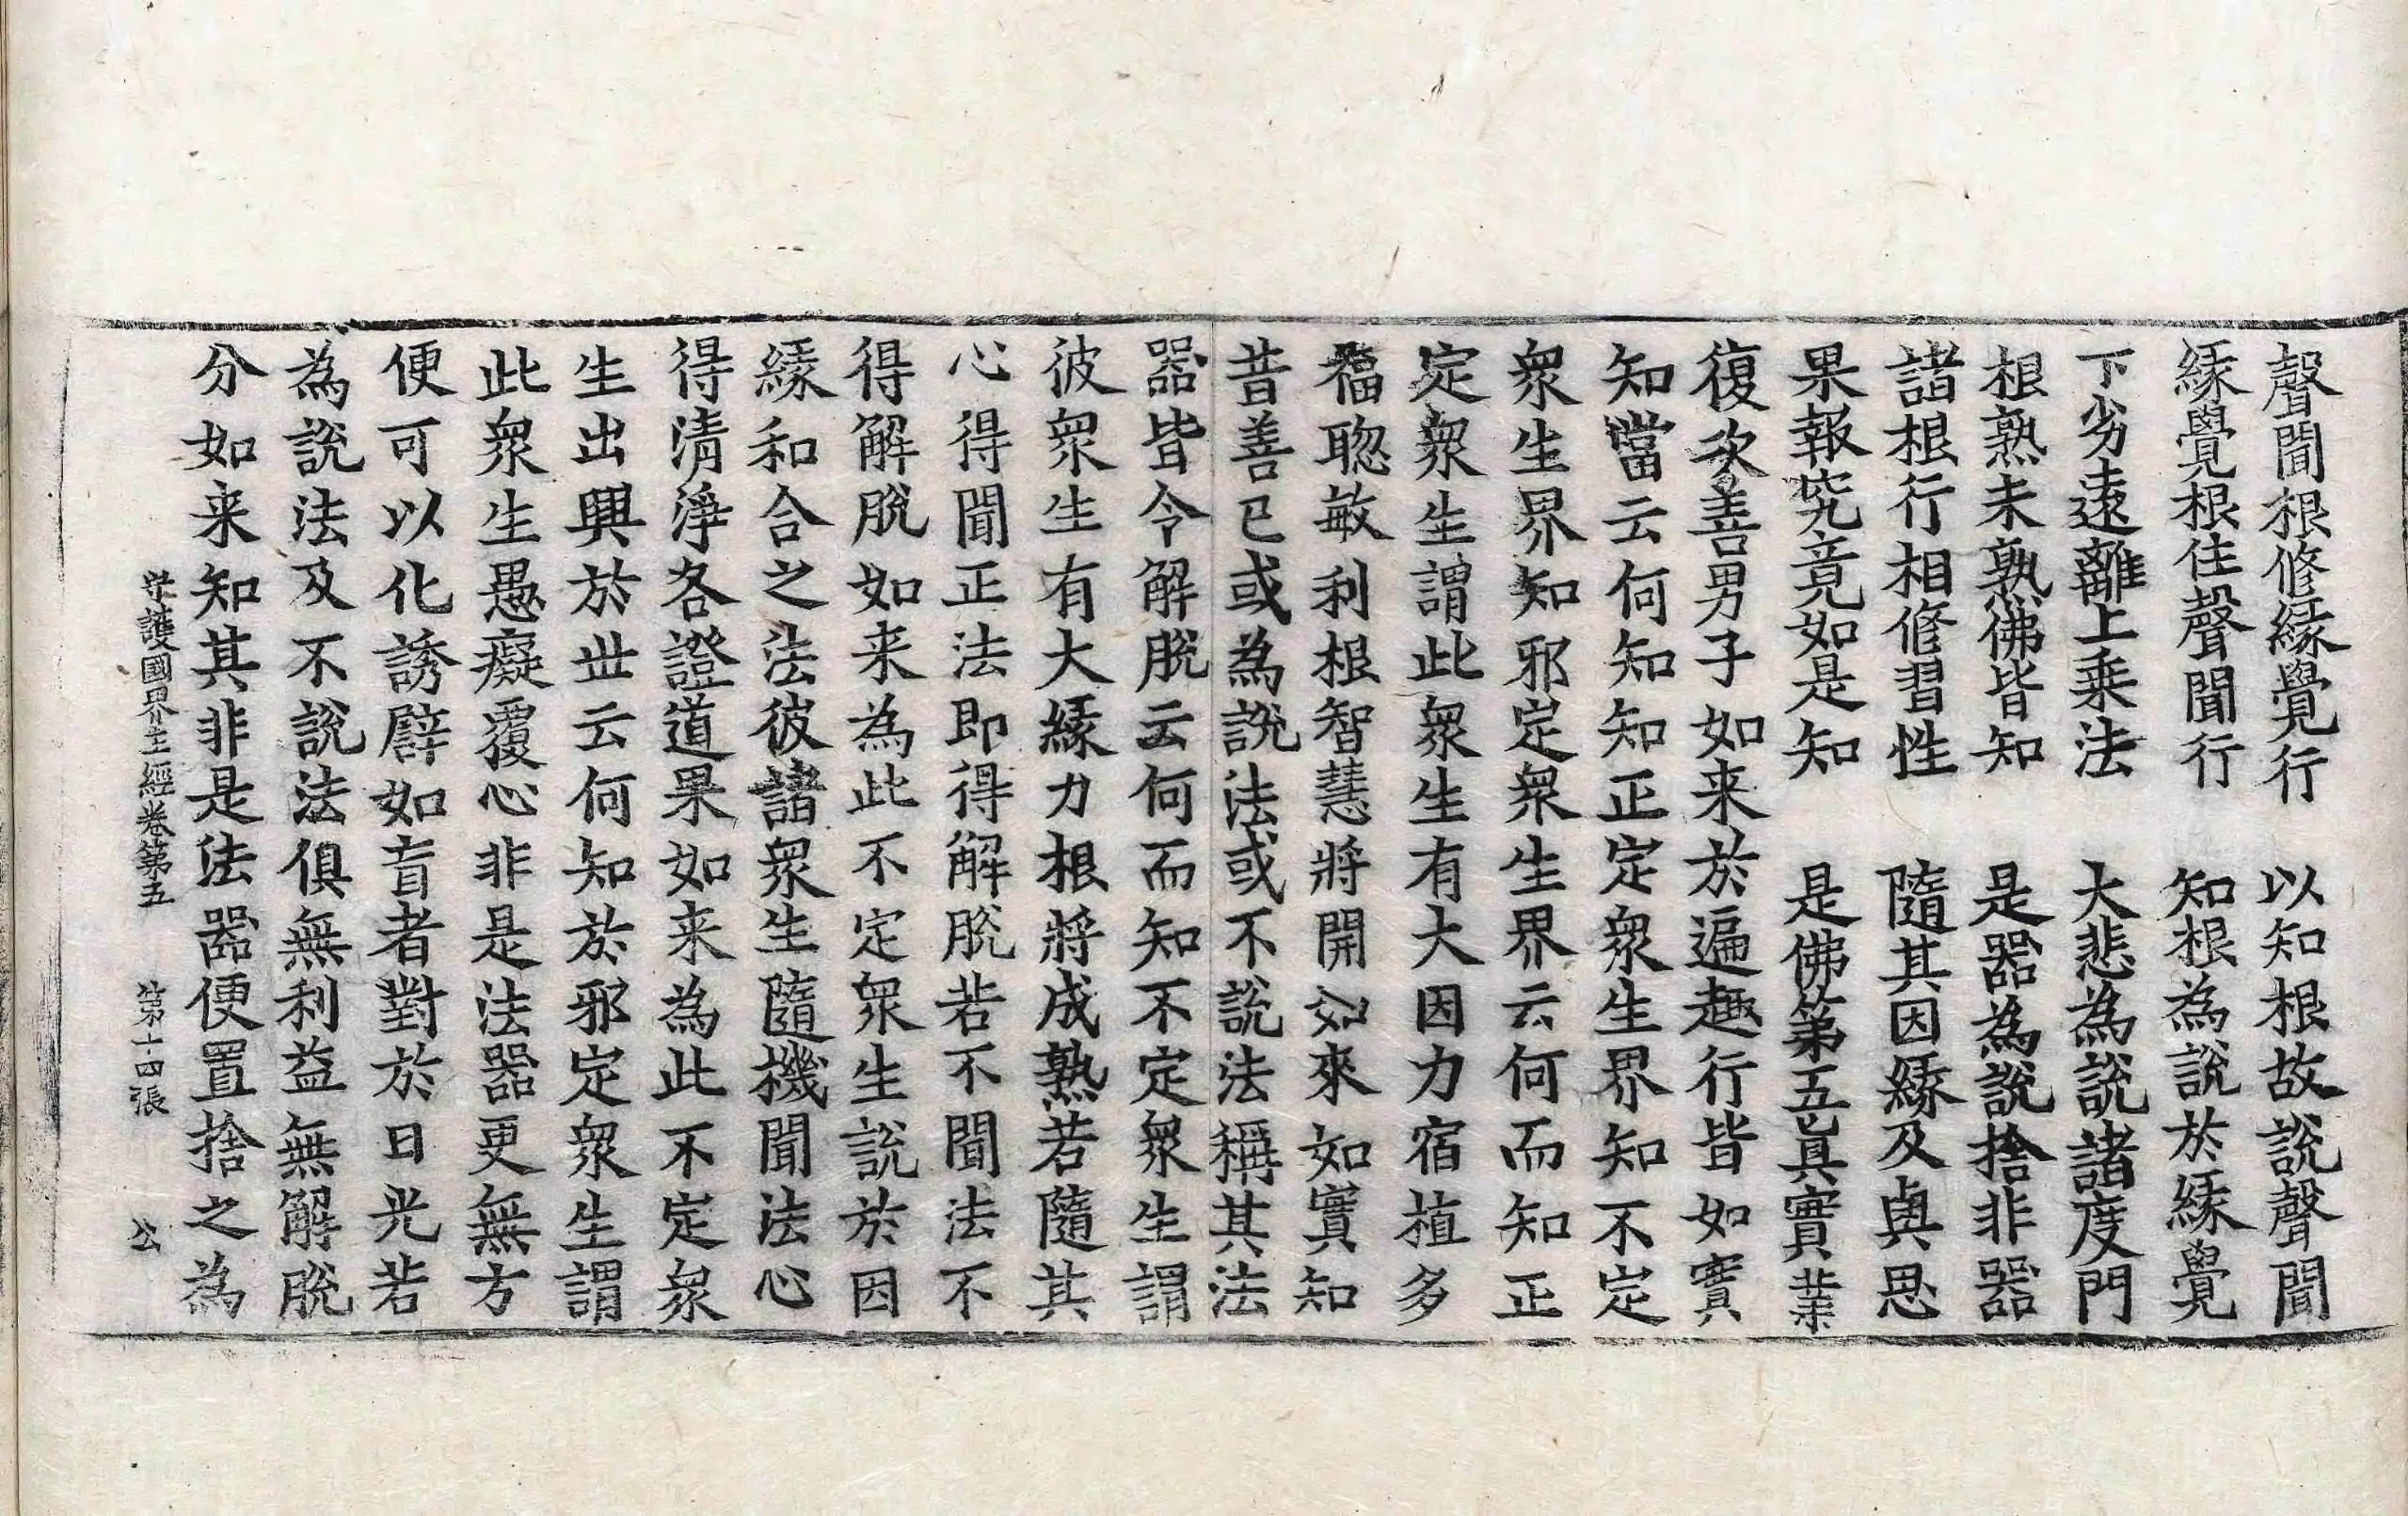 聲聞根修緣覺行　以知根故說聲聞
緣覺根住聲聞行　知根為說於緣覺
下劣遠離上乘法　大悲為說諸度門
根熟未熟佛皆知　是器為說捨非器
諸根行相修習性　隨其因緣及與思
果報究竟如是知　是佛第五真實業
復次善男子如来於遍趣行皆如實
知當云何知知正定衆生界知不定
衆生界知邪定衆生界云何而知正
定衆生謂此衆生有大因力宿植多
福聦敏利根智慧將開如來如實知
昔善已或為說法或不說法稱其法
器皆令解脫云何而知不定衆生謂
彼衆生有大緣力根將成熟若隨其
心得聞正法即得解脫若不聞法不
得解脫如来為此不定衆生說於因
緣和合之法彼諸衆生隨機聞法心
得清淨各證道果如来為此不定衆
生出興於世云何知於邪定衆生謂
此衆生愚癡覆心非是法器更無方
便可以化誘譬如盲者對於日光若
為說法及不說法俱無利益無解脫
分如来知其非是法器便置捨之為
守護國界主經卷第五　第十四張　公